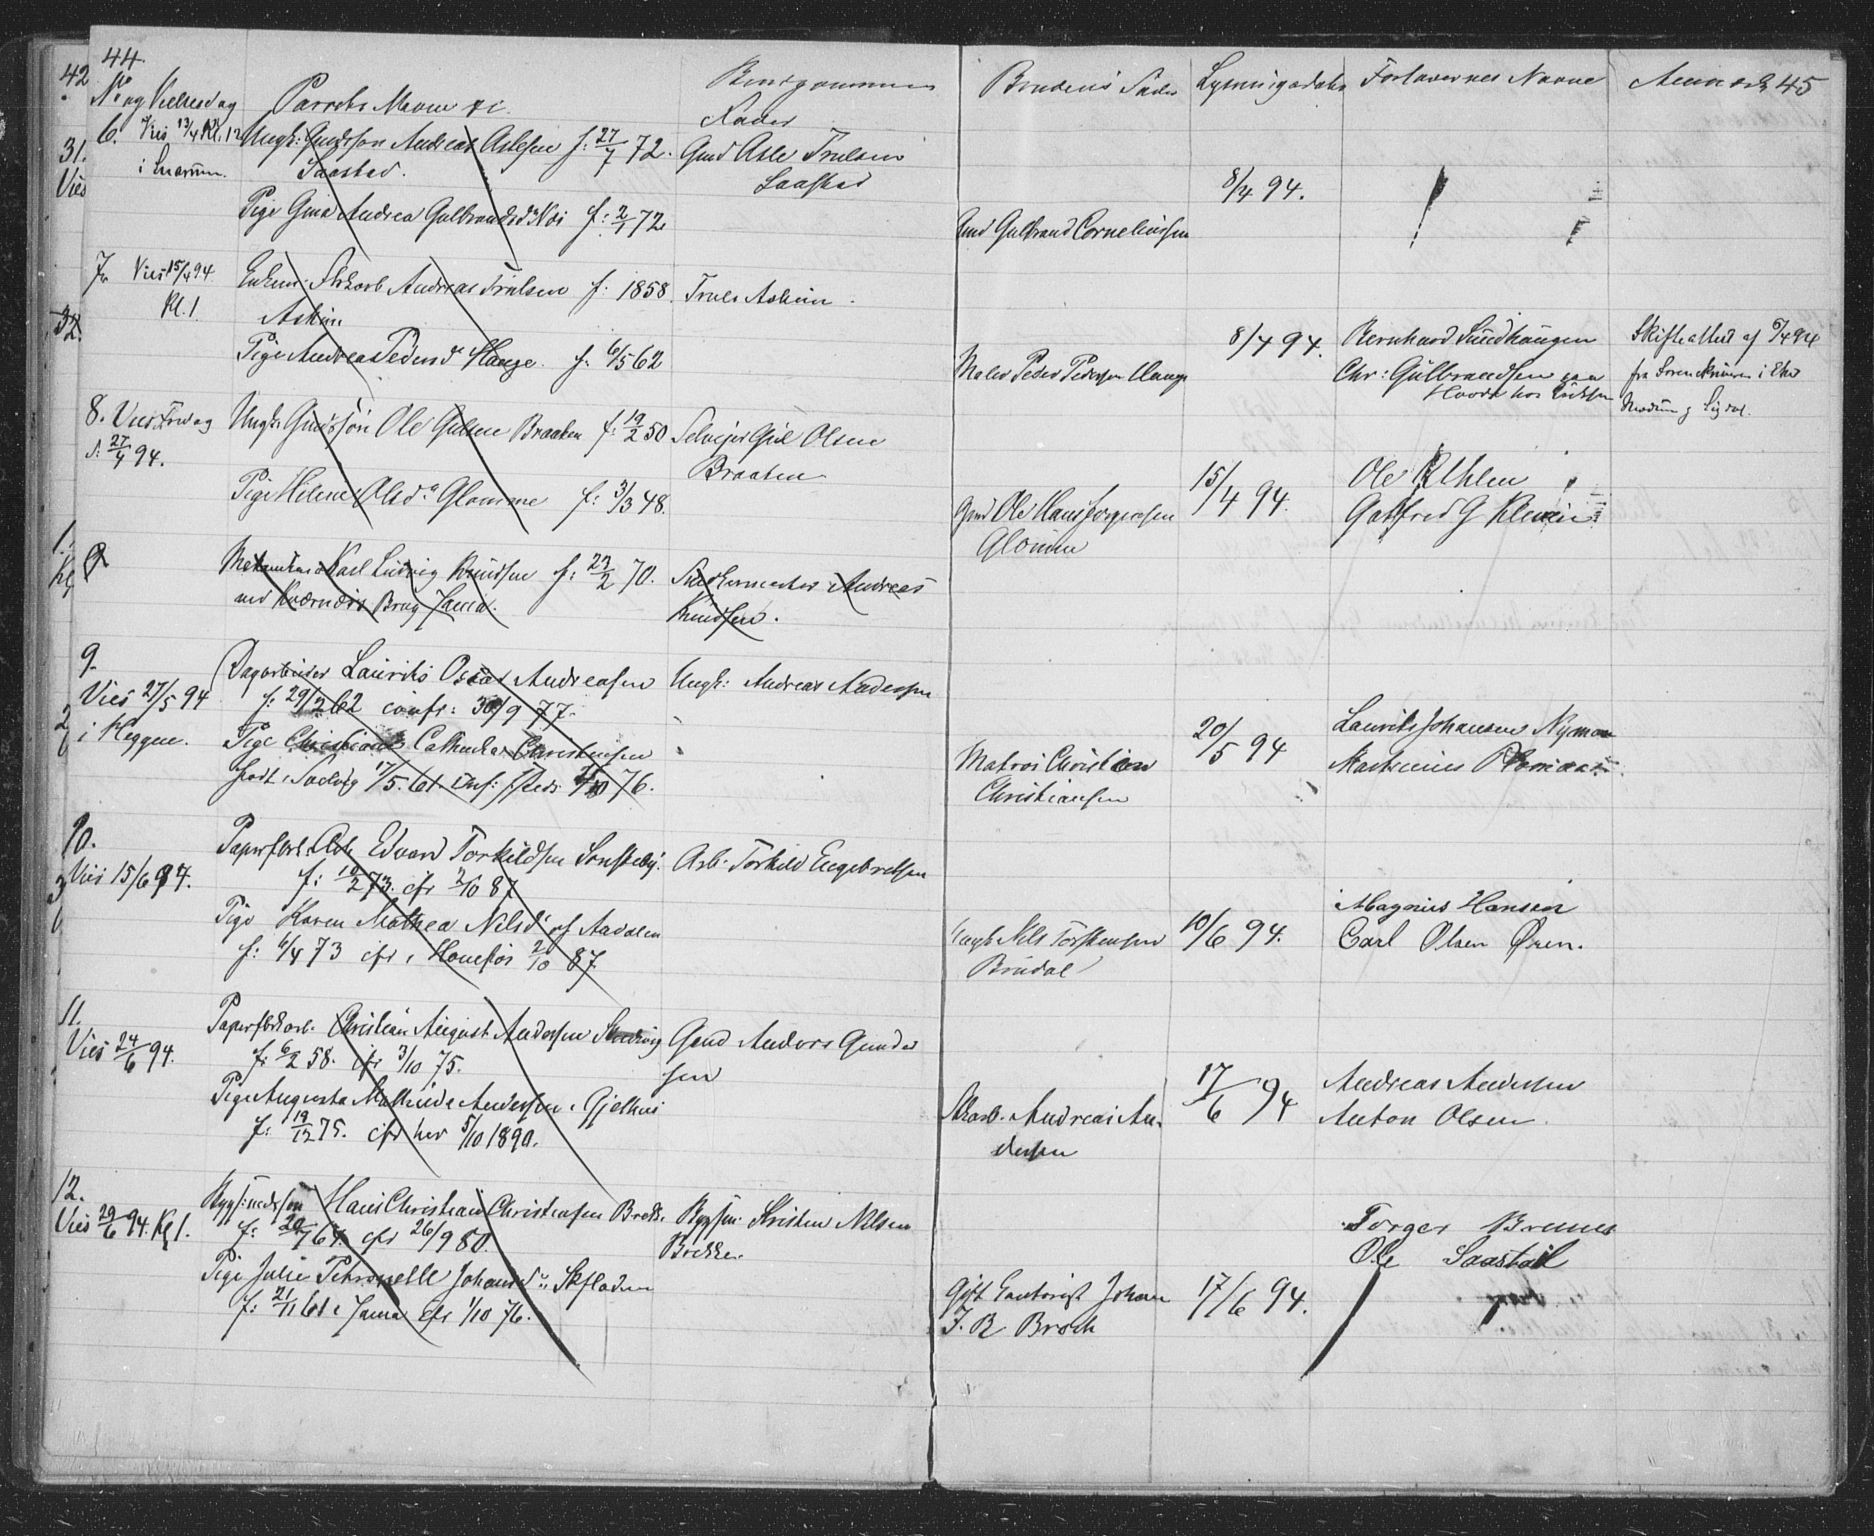 44.
42
No og Vielsesdag
Parrets Navne &c.
Brudgommens
Fader
Brudens Fader
Lysningsdato
Forlovernes Navne
Anmærk 45
6. Vies 13/4 Kl. 12
i Snarum.
31.
Vies
Ungk: Gmdssøn Andreas Aslesen f: 27/7 72.
Saastad.
Gmd Asle Trulsen
Saastad
Pige Gina Andrea Gulbrandsd. f: 2/1 72
Gmd Gulbrand Corneliussen
8/4 94.
7. Vies 15/4 94
Kl. 1.
32.
Enkem. Andreas Trulsen f: 1858.
Askim
Truls Askim.
Pige Andrea Pedersd. Hauge. f. 6/5 62
Maler Peder Pedersen Hauge
8/4 94.
Bernhard Sundhaugen
Chr: Gulbrandsen
Skifteattest af 6/4 94
fra Sorenskriveren i Eker
Modum og Sigdal.
8. Vies Fredag
d. 27/4 94.
Ungk: Gmdssøn Ole Gulsen Braaten f. 19/2 50
Selveier Gul Olsen
Braaten
Pige Helene Olsd. Glomme f: 3/3 48.
Gmd Ole Hans Jørgensen
Glomm
15/4 94.
Ole Uhlen
Gotfred G Kleven
1.
Kl
Karl Ludvig Knudsen f: 23/2 70.
ved Kværners Brug Jama.
Snedkermester Andreas
Knudsen.
9.
Vies 27/5 94
i Heggen.
Dagarbeider Laurits Oscar Andreasen
f: 29/2 62 confr: 30/9 77.
Ungk: Andreas Andersen
Pige Cathinka Christensen
født i 17/5. 61. 76.
Matros Christian
Christiansen
20/5 94
Laurits Johansen Nyman
10.
Vies 15/6 94.
Edvard Torkildsen Sønsteby.
f: 19/2 73. cfr 2/10 87
Arb. Torkild Engebretsen
Pige Karen Mathea Nilsd. af Aadalen
f: 6/4 73 cfr i Hønefos 2/10 87
Ungk Nils Torstensen
Brudal
10/6 94.
Magnus Hansen
Carl Olsen Øren.
11.
Vies 24/6 94.
Christian August Andersen
f: 6/2 58. cfr 3/10 75.
Gmd Anders Gunder
sen
Pige Augusta Mathilde Andersen, Gjethus
f: 19/12 75. cfr her 5/10 1890.
Andreas An-
dersen
17/6 94
Andreas Andersen
Anton Olsen.
12.
Vies 29/6 94. Kl 1.
Hans Christian Christensen Brekke
f: 20/7 64. cfr 26/9 80.
Kristen Nilsen
Brekke.
Pige Julie Petronelle Johansd.
f: 21/11 61 i Jama cfr 1/10 76.
Johan
J. R Broch
17/6 94.
Torger Bremnes
Ole Saastad